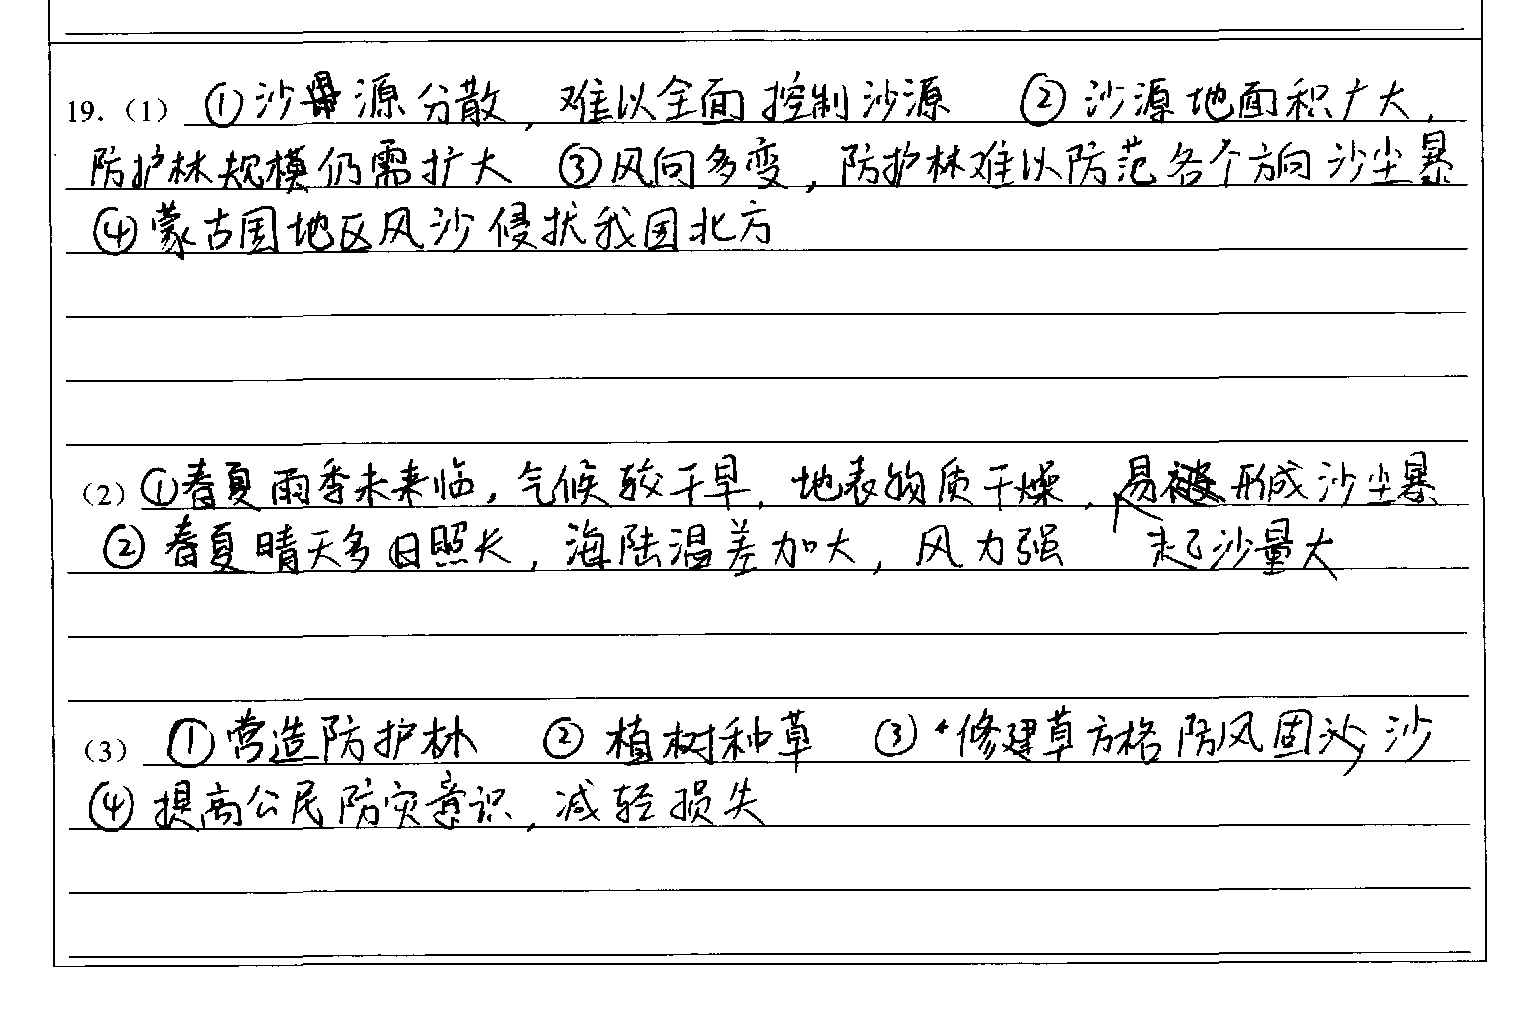 19.（1）①沙源分散，难以全面控制沙源 ②沙源地面积广大，
防护林规模仍需扩大 ③风向多变，防护林难以防范各个方向沙尘暴
④蒙古国地区风沙侵扰我国北方
（2）①春夏雨季未来临，气候较干旱，地表物质干燥，易形成沙尘暴
②春夏晴天多日照长，海陆温差加大，风力强 起沙量大
（3）①营造防护林 ②植树种草 ③修建草方格防风固沙
④提高公民防灾意识，减轻损失